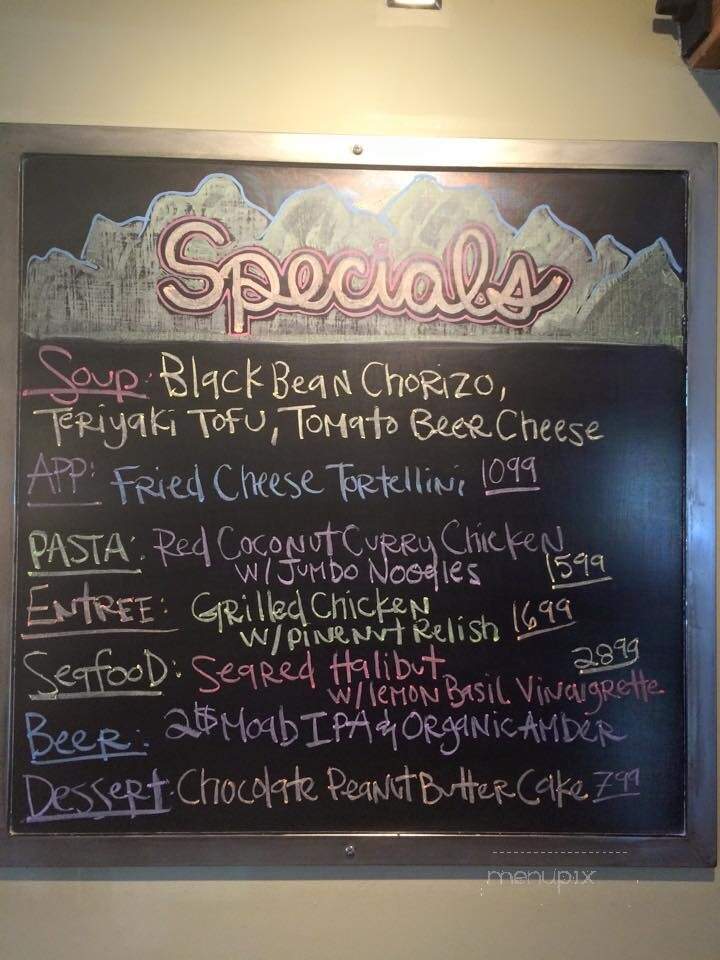 Specials
Soup: Black Bean Chorizo,
Teriyaki Tofu, Tomato Beer Cheese
App: Fried Cheese Tortellini 1099
Pasta: Red Coconut Curry Chicken
w/ Jumbo Noodles 1599
Entree: Grilled Chicken
w/ pinenut Relish 1699
Seafood: Seared Halibut 2899
w/ lemon Basil Vinaigrette
Beer: 2$ Moab IPA & Organic Amber
Dessert: Chocolate Peanut Butter Cake 799
menupix